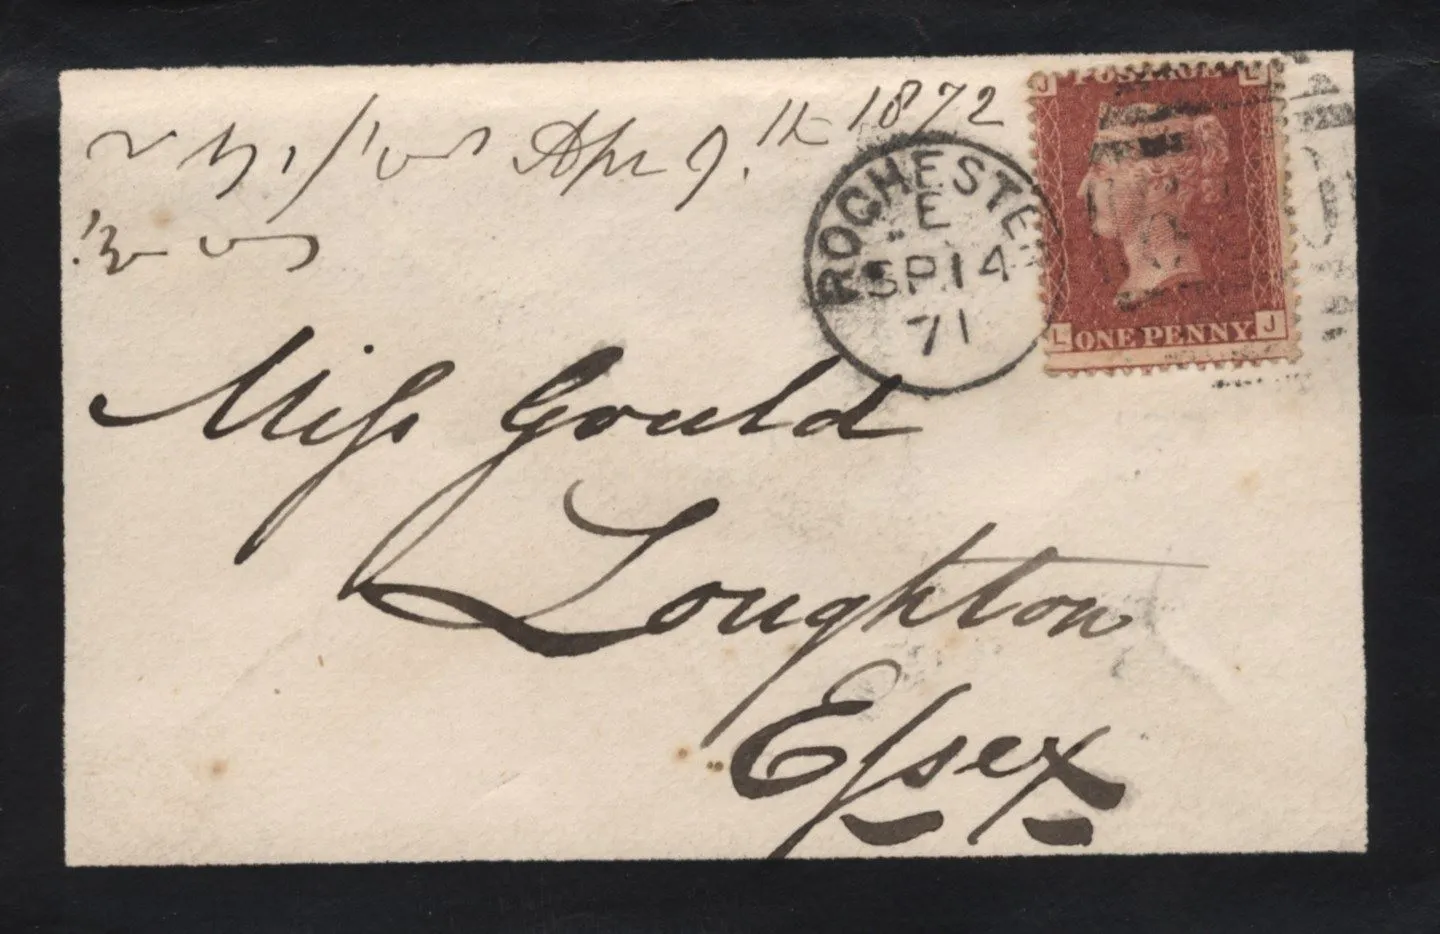 Apr 9. 1872
ROCHESTER
E
SP 14
71
J POSTAGE L
L ONE PENNY. J
Miss Gould
Loughton
Essex